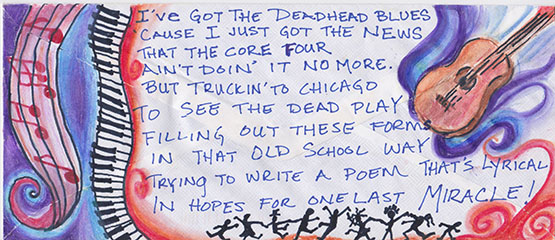 I've Got The Deadhead Blues
'Cause I Just Got The News
That The Core Four
Ain't Doin' It No More.
But Truckin' To Chicago
To See The Dead Play
Filling Out These Forms
In That Old School Way
Trying To Write A Poem That's Lyrical
In Hopes For One Last Miracle!